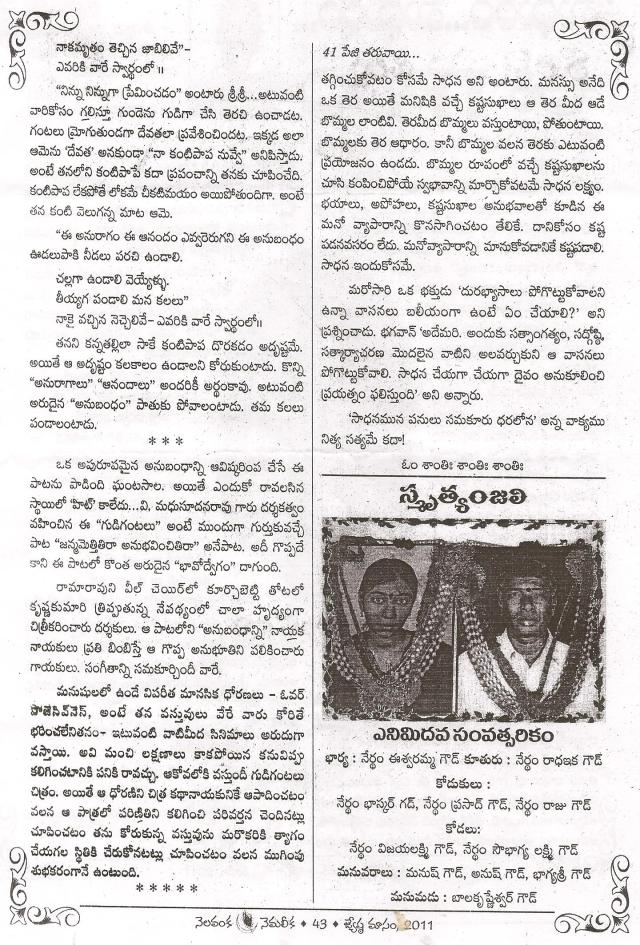 నాకమృతం తెచ్చిన జాబిలివే"-
ఎవరికి వారే స్వార్థంలో ॥
"నిన్ను నిన్నుగా ప్రేమించడం" అంటారు శ్రీశ్రీ...అటువంటి
వారికోసం గల్లిస్తూ గుండెను గుడిగా చేసి తెరచి ఉంచాడట.
గంటలు మ్రోగుతుండగా దేవతలా ప్రవేశించిందట. ఇక్కడ అలా
ఆమెను 'దేవత' అనకుండా "నా కంటిపాప నువ్వే" అనిపిస్తాడు.
అంటే తనలోని కంటిపాపే కదా ప్రపంచాన్ని తనకు చూపించేది.
కంటిపాప లేకపోతే లోకమే చీకటిమయం అయిపోతుందిగా. అంటే
తన కంటి వెలుగన్న మాట ఆమె.
"ఈ అనురాగం ఈ ఆనందం ఎవ్వరెరుగని ఈ అనుబంధం
ఊడలుపాకి నీడలు పరచి ఉండాలి.
చల్లగా ఉండాలి వెయ్యేళ్ళు.
తీయ్యగ పండాలి మన కలలు"
నాకై వచ్చిన నెచ్చెలివే- ఎవరికి వారే స్వార్థంలో॥
తనని కన్నతల్లిలా సాకే కంటిపాప దొరకడం అదృష్టమే.
అయితే ఆ అదృష్టం కలకాలం ఉండాలని కోరుకుంటాడు. కొన్ని
"అనురాగాలు" "ఆనందాలు" అందరికీ అర్థంకావు. అటువంటి
అరుదైన "అనుబంధం" పాతుకు పోవాలంటాడు. తమ కలలు
పండాలంటాడు.
* * *
ఒక అపురూపమైన అనుబంధాన్ని ఆవిష్కరింప చేసే ఈ
పాటను పాడింది ఘంటసాల. అయితే ఎందుకో రావలసిన
స్థాయిలో 'హిట్' కాలేదు...వి, మధుసూదనరావు గారు దర్శకత్వం
వహించిన ఈ "గుడిగంటలు" అంటే ముందుగా గుర్తుకువచ్చే
పాట "జన్మమెత్తితిరా అనుభవించితిరా" అనేపాట. అదీ గొప్పదే
కాని ఈ పాటలో కొంత అరుదైన "భావోద్వేగం" దాగుంది.
రామారావుని వీల్ చెయిర్‌లో కూర్చోబెట్టి తోటలో
కృష్ణకుమారి త్రిప్పుతున్న నేపథ్యంలో చాలా హృద్యంగా
చిత్రీకరించారు దర్శకులు. ఆ పాటలోని "అనుబంధాన్ని" నాయక
నాయకులు ప్రతి బింబిస్తే ఆ గొప్ప అనుభూతిని పలికించారు
గాయకులు. సంగీతాన్ని సమకూర్చిందీ వారే.
మనుషులలో ఉండే విపరీత మానసిక ధోరణలు - ఓవర్
పొజెసివ్‌నెస్, అంటే తన వస్తువులు వేరే వారు కోరితే
భరించలేనితనం- ఇటువంటి వాటిమీద సినిమాలు అరుదుగా
వస్తాయి. అవి మంచి లక్షణాలు కాకపోయిన కనువిప్పు
కలిగించటానికి పనికి రావచ్చు. ఆకోవలోకి వస్తుంది గుడిగంటలు
చిత్రం. అయితే ఆ ధోరణిని చిత్ర కథానాయకునికే ఆపాదించటం
వలన ఆ పాత్రలో పరిణితిని కలిగించి పరివర్తన చెందినట్లు
చూపించటం తను కోరుకున్న వస్తువును మరొకరికి త్యాగం
చేయగల స్థితికి చేరుకోనటట్లు చూపించటం వలన ముగింపు
శుభకరంగానే ఉంటుంది.
* * * * *
41 పేజి తరువాయి...
తగ్గించుకోవటం కోసమే సాధన అని అంటారు. మనస్సు అనేది
ఒక తెర అయితే మనిషికి వచ్చే కష్టసుఖాలు ఆ తెర మీద ఆడే
బొమ్మల లాంటివి. తెరమీద బొమ్మలు వస్తుంటాయి, పోతుంటాయి.
బొమ్మలకు తెర ఆధారం. కానీ బొమ్మల వలన తెరకు ఎటువంటి
ప్రయోజనం ఉండదు. బొమ్మల రూపంలో వచ్చే కష్టసుఖాలను
చూసి కంపించిపోయే స్వభావాన్ని మార్చుకోవటమే సాధన లక్ష్యం.
భయాలు, అపోహలు, కష్టసుఖాల అనుభవాలతో కూడిన ఈ
మనో వ్యాపారాన్ని కొనసాగించటం తేలికే. దానికోసం కష్ట
పడనవసరం లేదు. మనోవ్యాపారాన్ని మానుకోవడానికే కష్టపడాలి.
సాధన ఇందుకోసమే.
మరోసారి ఒక భక్తుడు 'దురభ్యాసాలు పోగొట్టుకోవాలని
ఉన్నా వాసనలు బలీయంగా ఉంటే ఏం చేయాలి?' అని
ప్రశ్నించాడు. భగవాన్ 'అదేమరి. అందుకు సత్సాంగత్యం, సద్గోష్ఠి,
సత్కార్యాచరణ మొదలైన వాటిని అలవర్చుకుని ఆ వాసనలు
పోగొట్టుకోవాలి. సాధన చేయగా చేయగా దైవం అనుకూలించి
ప్రయత్నం ఫలిస్తుంది' అని అన్నారు.
'సాధనమున పనులు సమకూరు ధరలోన' అన్న వాక్యము
నిత్య సత్యమే కదా!
ఓం శాంతిః శాంతిః శాంతిః
స్మృత్యంజలి
ఎనిమిదవ సంవత్సరికం
భార్య : నేర్ధం ఈశ్వరమ్మ గౌడ్ కూతురు : నేర్ధం రాధఇక గౌడ్
కోడుకులు :
నేర్ధం భాస్కర్ గడ్, నేర్ధం ప్రసాద్ గౌడ్, నేర్ధం రాజు గౌడ్
కోడలు:
నేర్ధం విజయలక్ష్మి గౌడ్, నేర్ధం సౌభాగ్య లక్ష్మి గౌడ్
మనువరాలు : మనుష్ గౌడ్, అనుష్ గౌడ్, భాగ్యశ్రీ గౌడ్
మనుమడు : బాలకృష్ణేశ్వర్ గౌడ్
నెలవంక నెమలీక ♦ 43 ♦ జ్యేష్ఠ మాసం, 2011